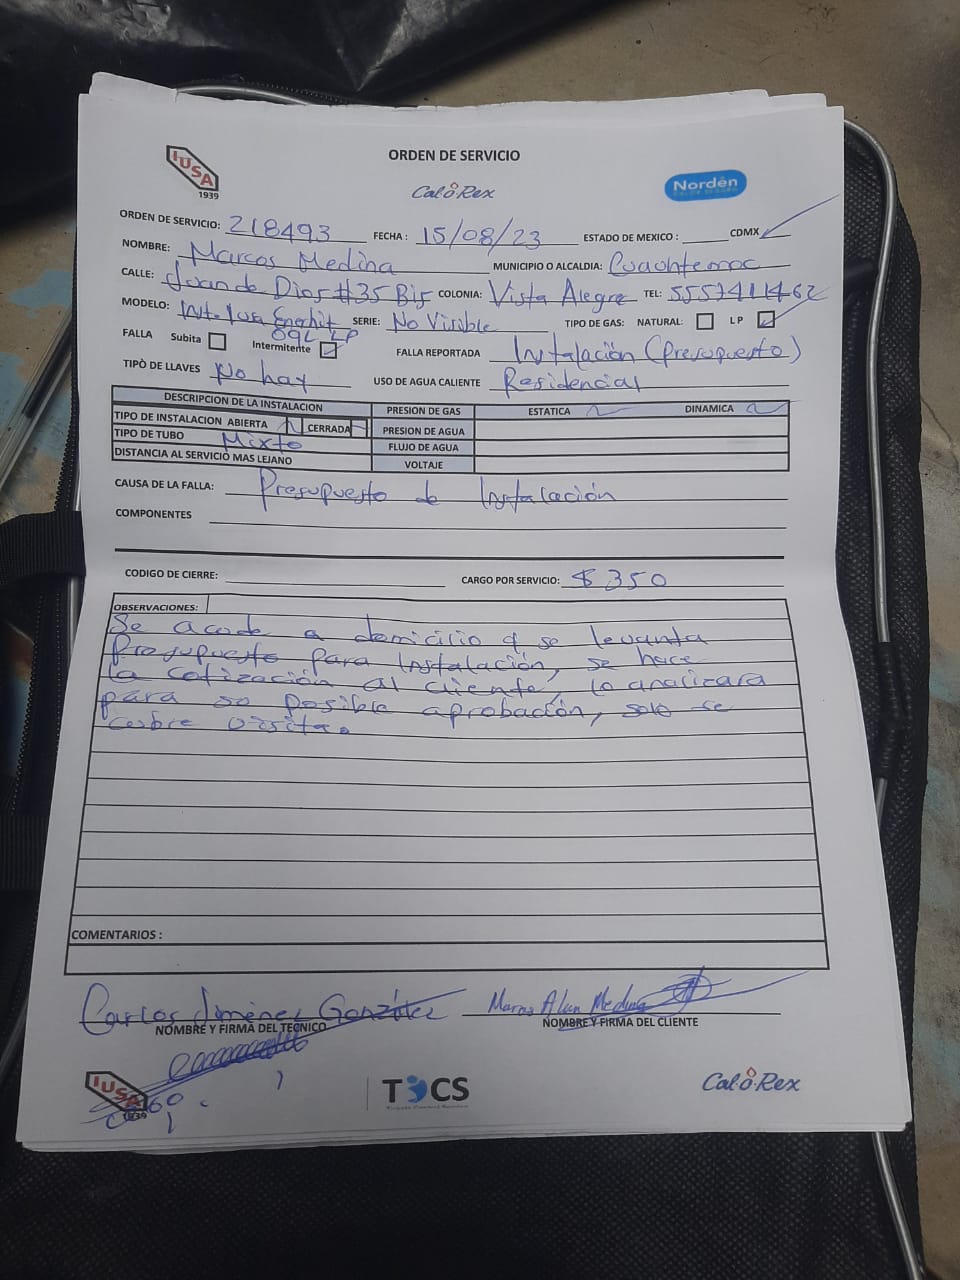 IUSA
1939
ORDEN DE SERVICIO
Cal-O-Rex
Nordën
ORDEN DE SERVICIO: 218493 FECHA : 15/08/23 ESTADO DE MEXICO : CDMX
NOMBRE: Marcos Medina MUNICIPIO O ALCALDIA: Cuauhtemoc
CALLE: Juan de Dios #35 Bis COLONIA: Vista Alegre TEL: 5557411462
MODELO: Int. Iusa Enerhit SERIE: No Visible TIPO DE GAS: NATURAL: LP
09L LP
FALLA Subita Intermitente FALLA REPORTADA Instalación (Presupuesto)
TIPÒ DE LLAVES No hay USO DE AGUA CALIENTE Residencial
DESCRIPCION DE LA INSTALACION PRESION DE GAS ESTATICA DINAMICA
TIPO DE INSTALACION ABIERTA CERRADA PRESION DE AGUA
TIPO DE TUBO Mixto FLUJO DE AGUA
DISTANCIA AL SERVICIO MAS LEJANO VOLTAJE
CAUSA DE LA FALLA: Presupuesto de Instalación
COMPONENTES
CODIGO DE CIERRE: CARGO POR SERVICIO: $350
OBSERVACIONES:
Se acude a domicilio y se levanta
Presupuesto para Instalación, se hace
la cotización al cliente, lo analizara
para su posible aprobación, solo se
cubre visita.
COMENTARIOS :
Carlos Jiménez González Marcos Alan Medina
NOMBRE Y FIRMA DEL TECNICO NOMBRE Y FIRMA DEL CLIENTE
IUSA
1939
TOCS
Cal-O-Rex